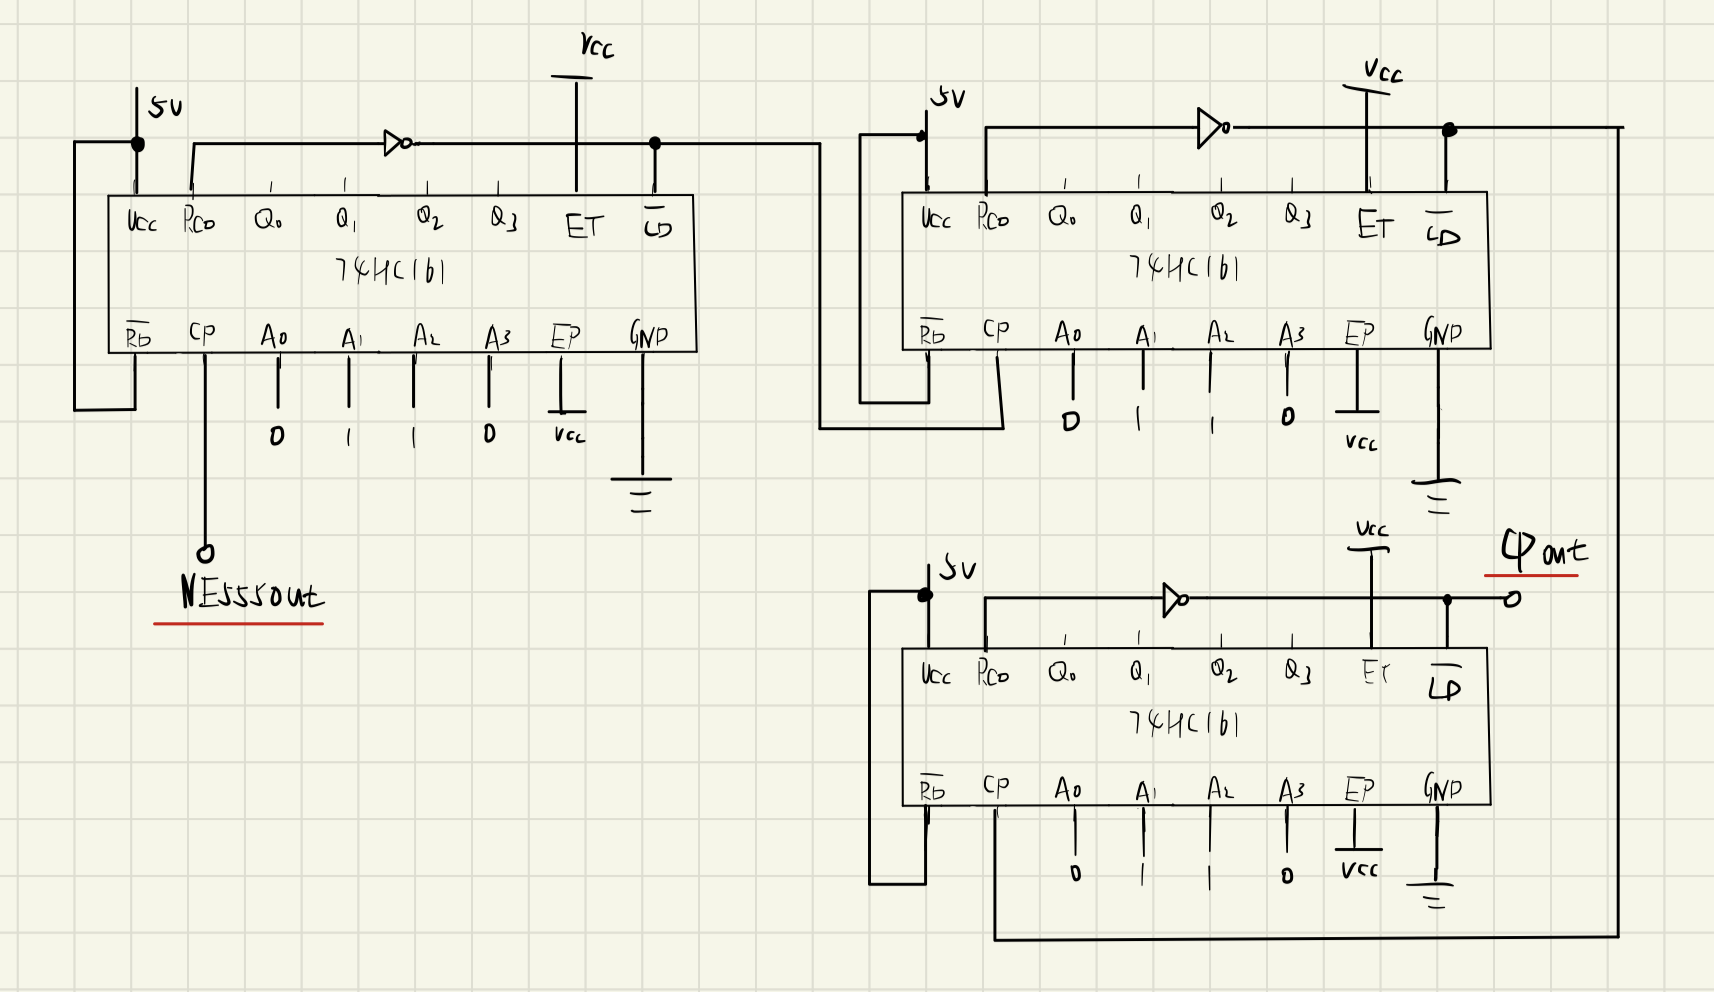 5V
Vcc
Vcc RCO Q0 Q1 Q2 Q3 ET LD
74HC161
RD CP A0 A1 A2 A3 EP GND
0 1 1 0 Vcc
NE555out
5V
Vcc
Vcc RCO Q0 Q1 Q2 Q3 ET LD
74HC161
RD CP A0 A1 A2 A3 EP GND
0 1 1 0 Vcc
5V
Vcc
CPout
Vcc RCO Q0 Q1 Q2 Q3 ET LD
74HC161
RD CP A0 A1 A2 A3 EP GND
0 1 1 0 Vcc